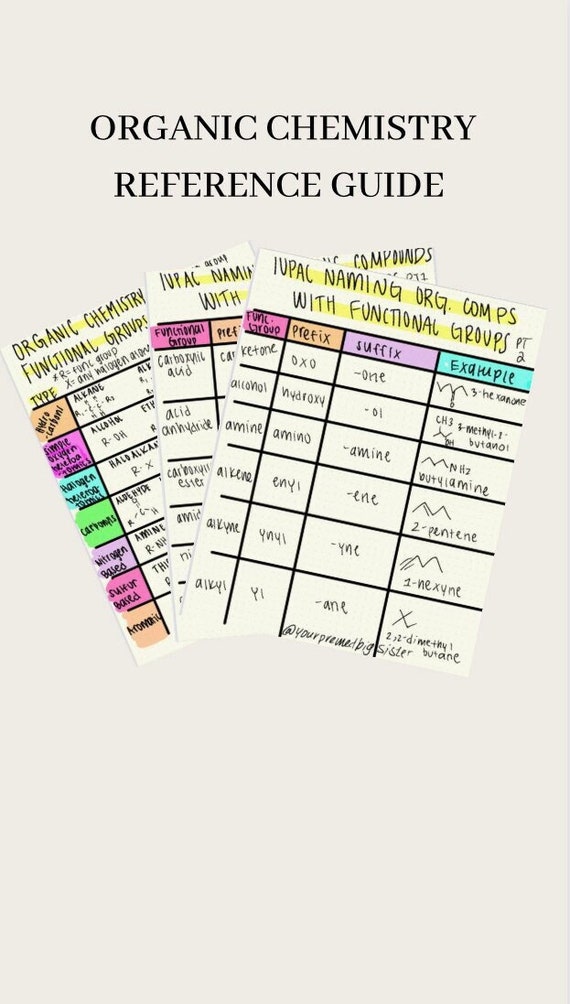 ORGANIC CHEMISTRY
REFERENCE GUIDE
ORGANIC CHEMISTRY
FUNCTIONAL GROUPS
* R= func group
X= any halogen atom
TYPE
ALKANE
Hydro
-carbons
ALCOHOL
R-OH
simple
oxygen
HALOALKAN
R-X
Halogen
ALDEHYDE
Carbonyls
AMINE
R-NH
nitrogen
Based
sulfur
Based
Aromatic
group
IUPAC NAMIN
COMPOUNDS
WITH
PT1
Functional
Group
Pref
carboxylic
acid
acid
anhydride
carboxyl
ester
amid
IUPAC NAMING ORG. COMPS
WITH FUNCTIONAL GROUPS PT
2
Func.
Group
Prefix
suffix
Example
ketone
oxo
-one
3-hexanone
alcohol
hydroxy
-ol
CH3 3-methyl-2-
butanol
OH
amine
amino
-amine
NH2
butylamine
alkene
enyl
-ene
2-pentene
alkyne
ynyl
-yne
1-hexyne
alkyl
yl
-ane
2,2-dimethyl
butane
@yourpremedbig sister